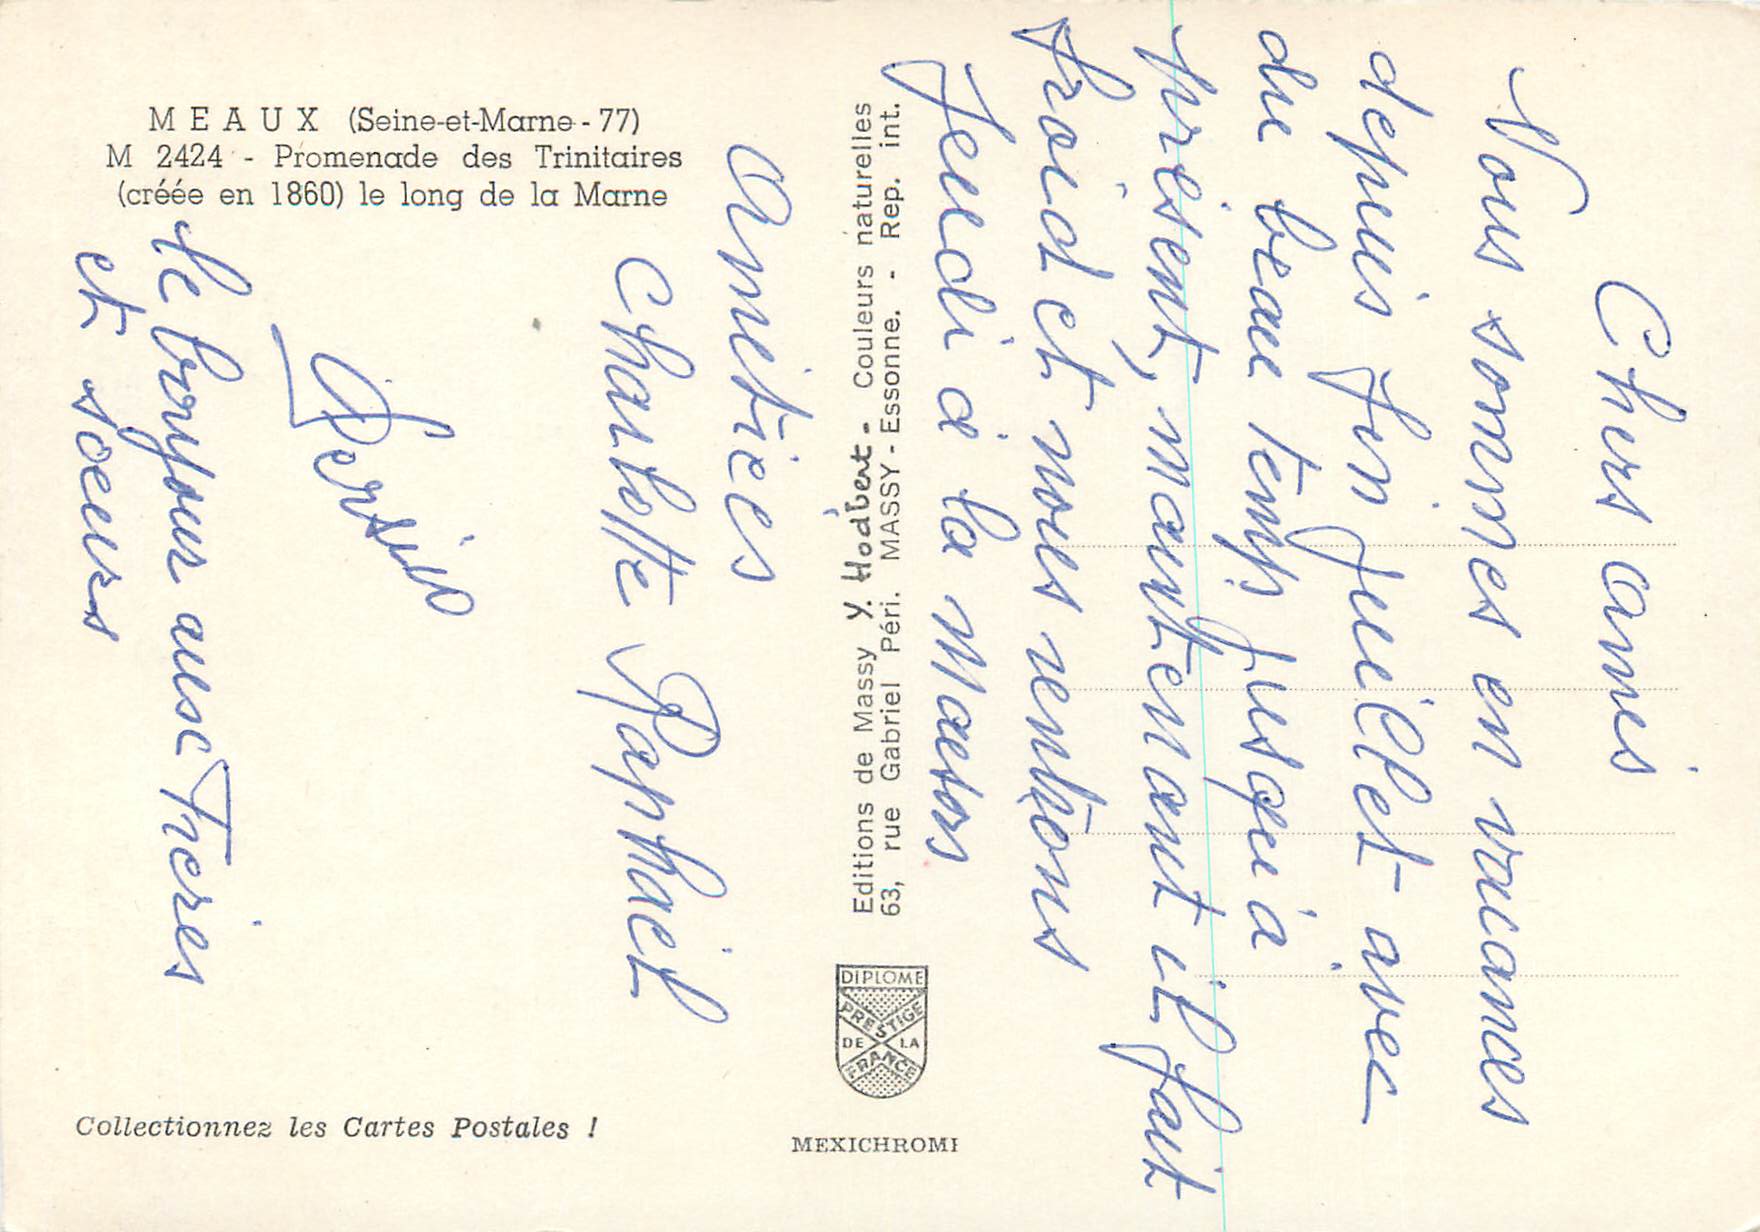 MEAUX (Seine-et-Marne - 77)
M 2424 - Promenade des Trinitaires
(créée en 1860) le long de la Marne
Editions de Massy Y. Hodbert - Couleurs naturelles
63, rue Gabriel Péri. MASSY - Essonne. - Rep. int.
DIPLOME
PRESTIGE
DE LA
FRANCE
MEXICHROMI
Collectionnez les Cartes Postales !
Chers amis
Nous sommes en vacances
depuis fin juillet avec
du beau temps jusqu'à
présent, maintenant il fait
froid et nous rentrons
Jeudi à la maison
Amitiés
Charlotte Raphaël
le bonjour aux frères
et soeurs